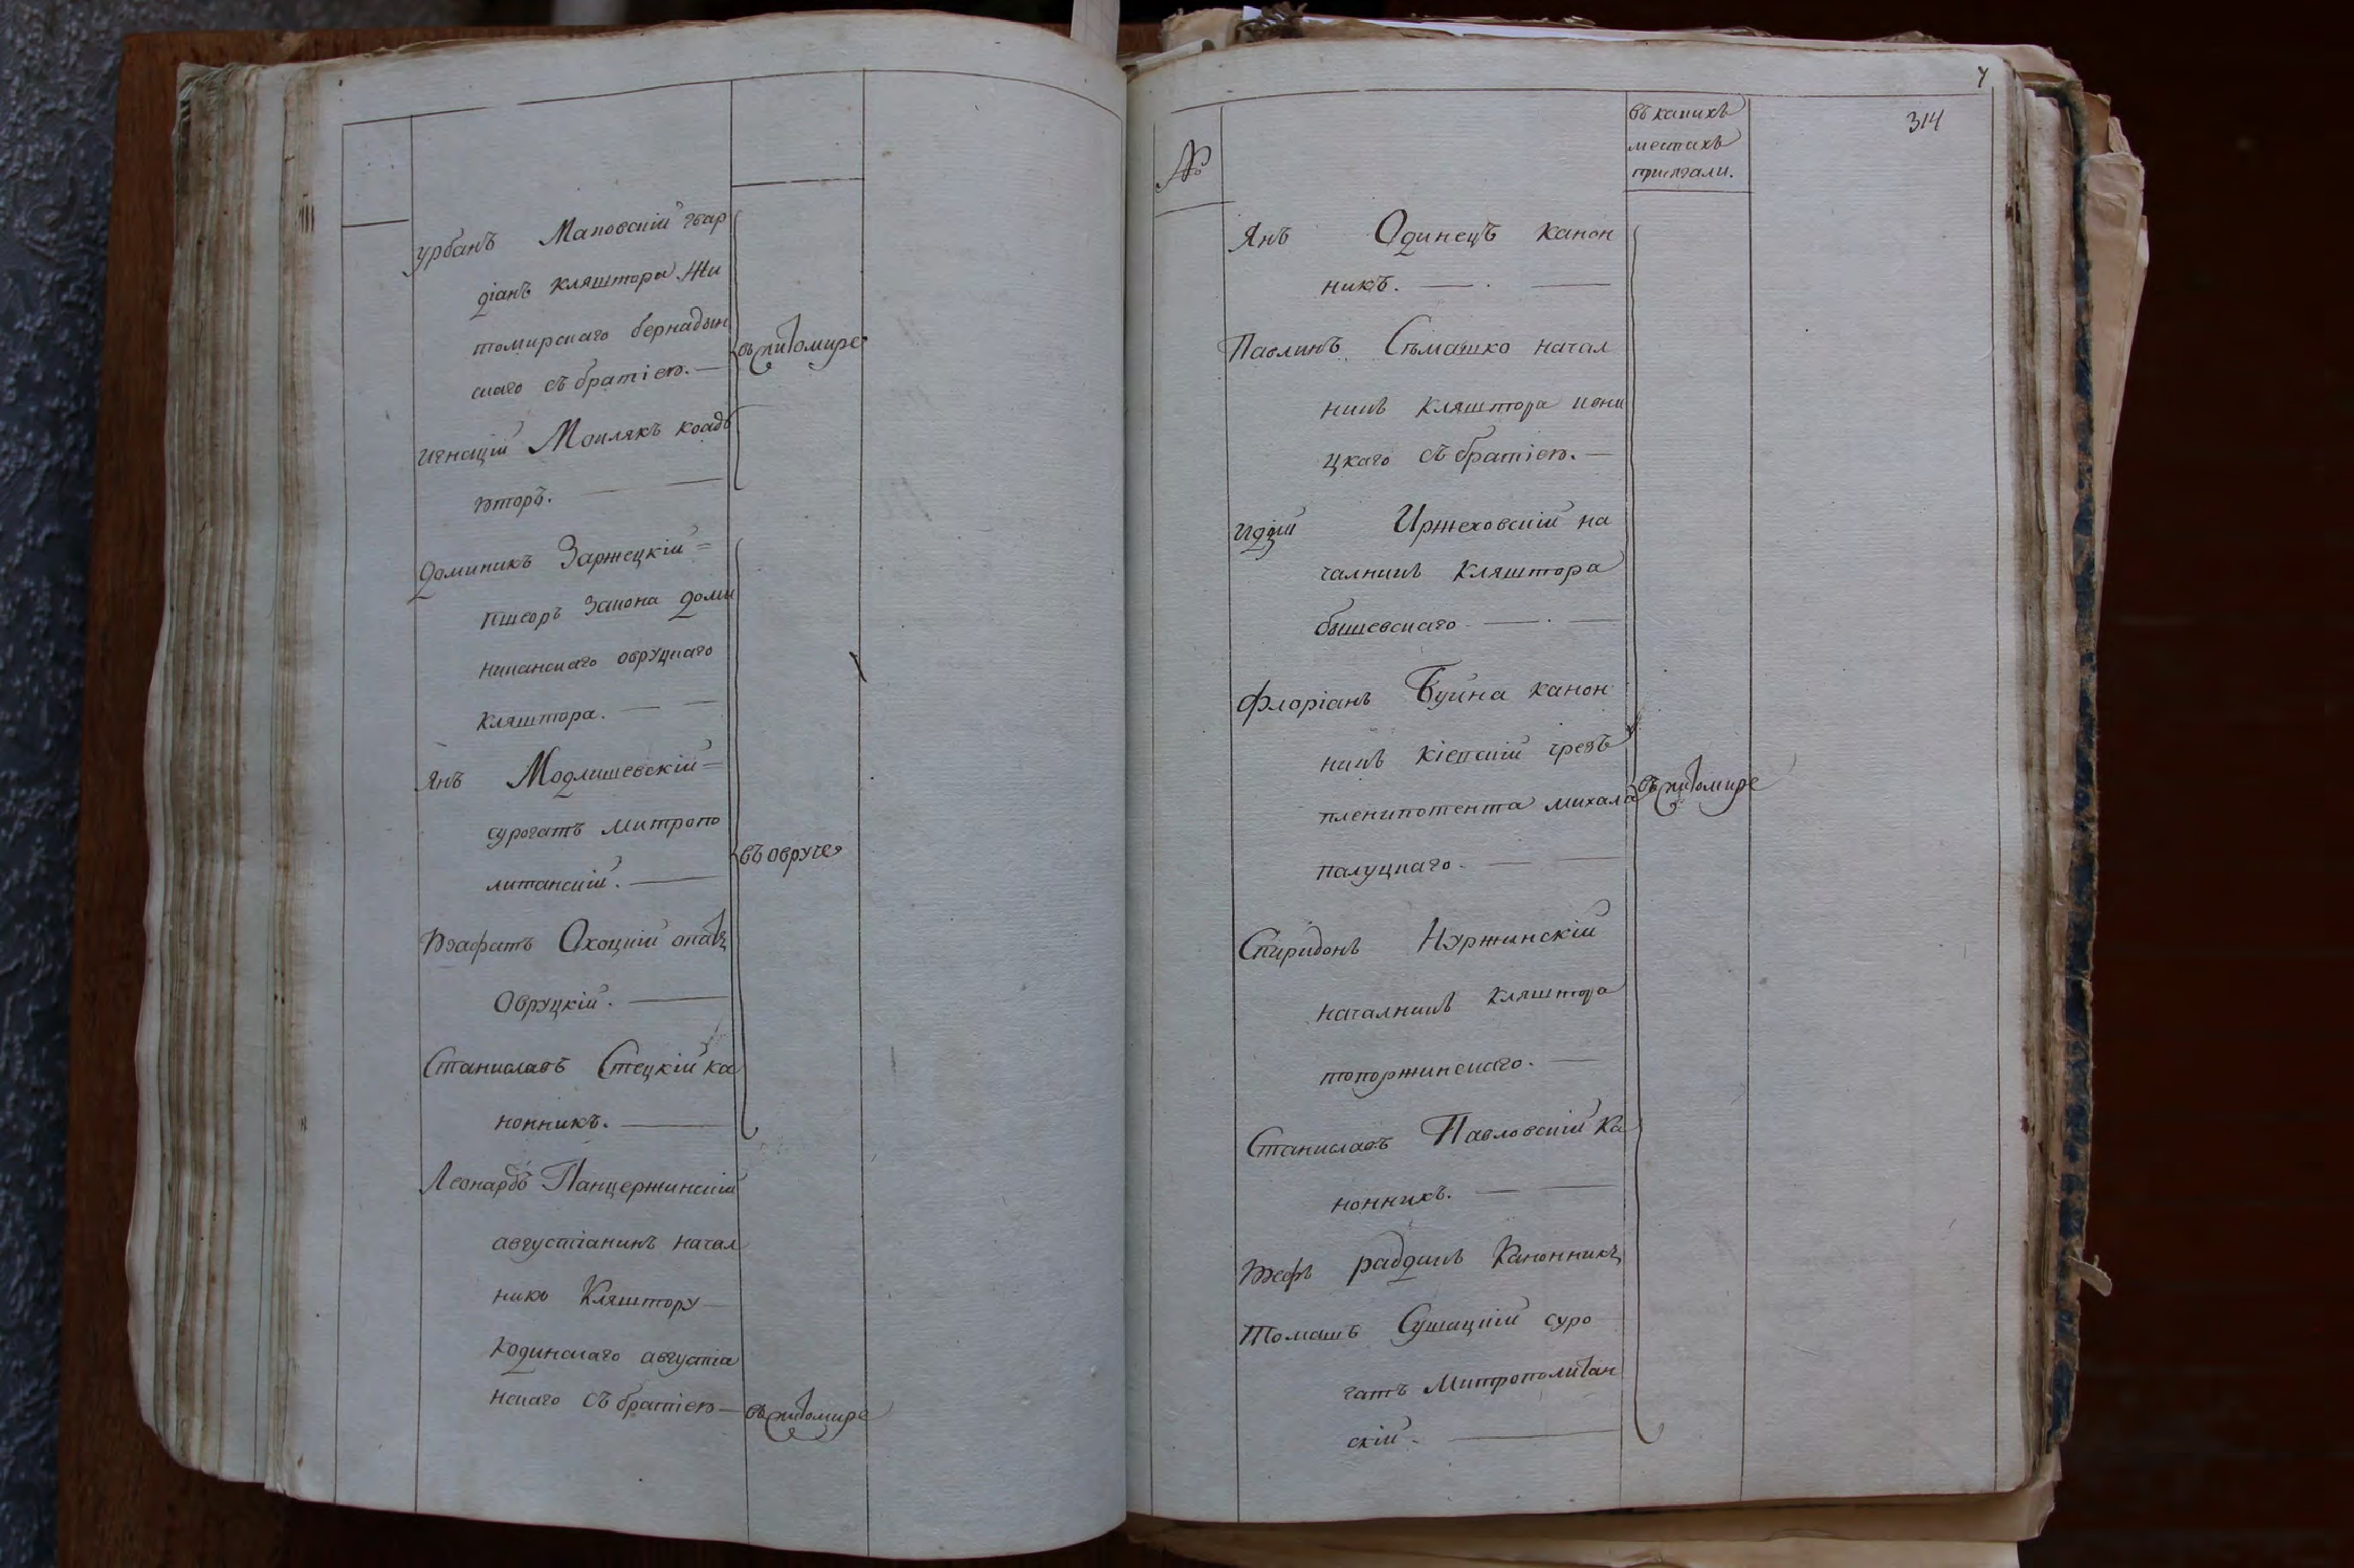 Урбанъ Маковскій гвар
діанъ кляштора Жи
томирскаго бернадын
скаго съ братіею.
въ житомире
Игнацій Мошлякъ коадъ
юторъ.
Доминикъ Заржецкій =
пшеоръ Закона доми
никанскаго овруцкаго
кляштора.
Янъ Модлишевскій =
сурогатъ митропо
литанскій.
въ овруче
Юзафатъ Охоцкій опатъ
Овруцкій.
Станиславъ Стецкій ка
нонникъ.
Леонардъ Панцержинскій
августіанинъ начал
никъ Кляштору
кодинскаго августіа
нскаго съ братіею
въ житомире
7
314
№
въ какихъ
местахъ
присягали.
Янъ Одинецъ канон
никъ.
Павлинъ Съмашко начал
никъ кляштора ивни
цкаго съ братіею.
Идзій Иржеховскій на
чалникъ кляштора
бышевскаго
Флоріанъ Буйна канон
никъ кіевскій чрезъ
пленипотента михала
палуцкаго.
въ житомире
Спиридонъ Нэржинскій
началникъ кляштора
топоржинскаго.
Станиславъ Павловскій ка
нонникъ.
Юзефъ раддикъ Канонникъ
Томашъ Сушицкій суро
гатъ Митрополитан
скій.